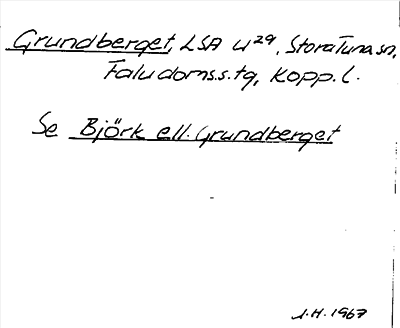 Grundberget, LSA U²⁹, Stora Tuna sn,
Falu doms.s.tg, Kopp. l.
Se Björk ell. Grundberget
J.H. 1967